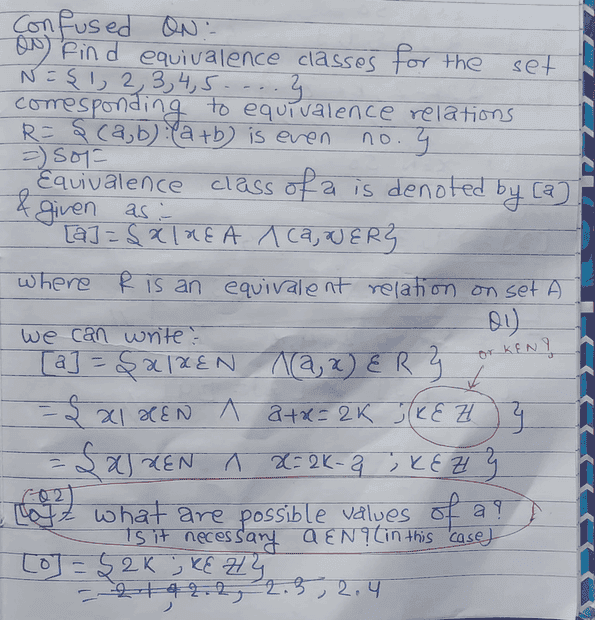 Confused QN:-
QN) Find equivalence classes for the set
N = { 1, 2, 3, 4, 5 . . . . }
corresponding to equivalence relations
R = { (a,b) : (a+b) is even no. }
=) Sol=
Equivalence class of a is denoted by [a]
& given as :-
[a] = { x | x ∈ A ∧ (a,x) ∈ R }
where R is an equivalent relation on set A
Q1)
we can write:
or K ∈ N ?
[a] = { x | x ∈ N ∧ (a,x) ∈ R }
= { x | x ∈ N ∧ a+x = 2K ; K ∈ ℤ }
= { x | x ∈ N ∧ x = 2K-a ; K ∈ ℤ }
(Q2)
[0] = what are possible values of a?
Is it necessary a ∈ N ? (in this case)
[0] = { 2K ; K ∈ ℤ }
= 2.1, 2.2, 2.3, 2.4